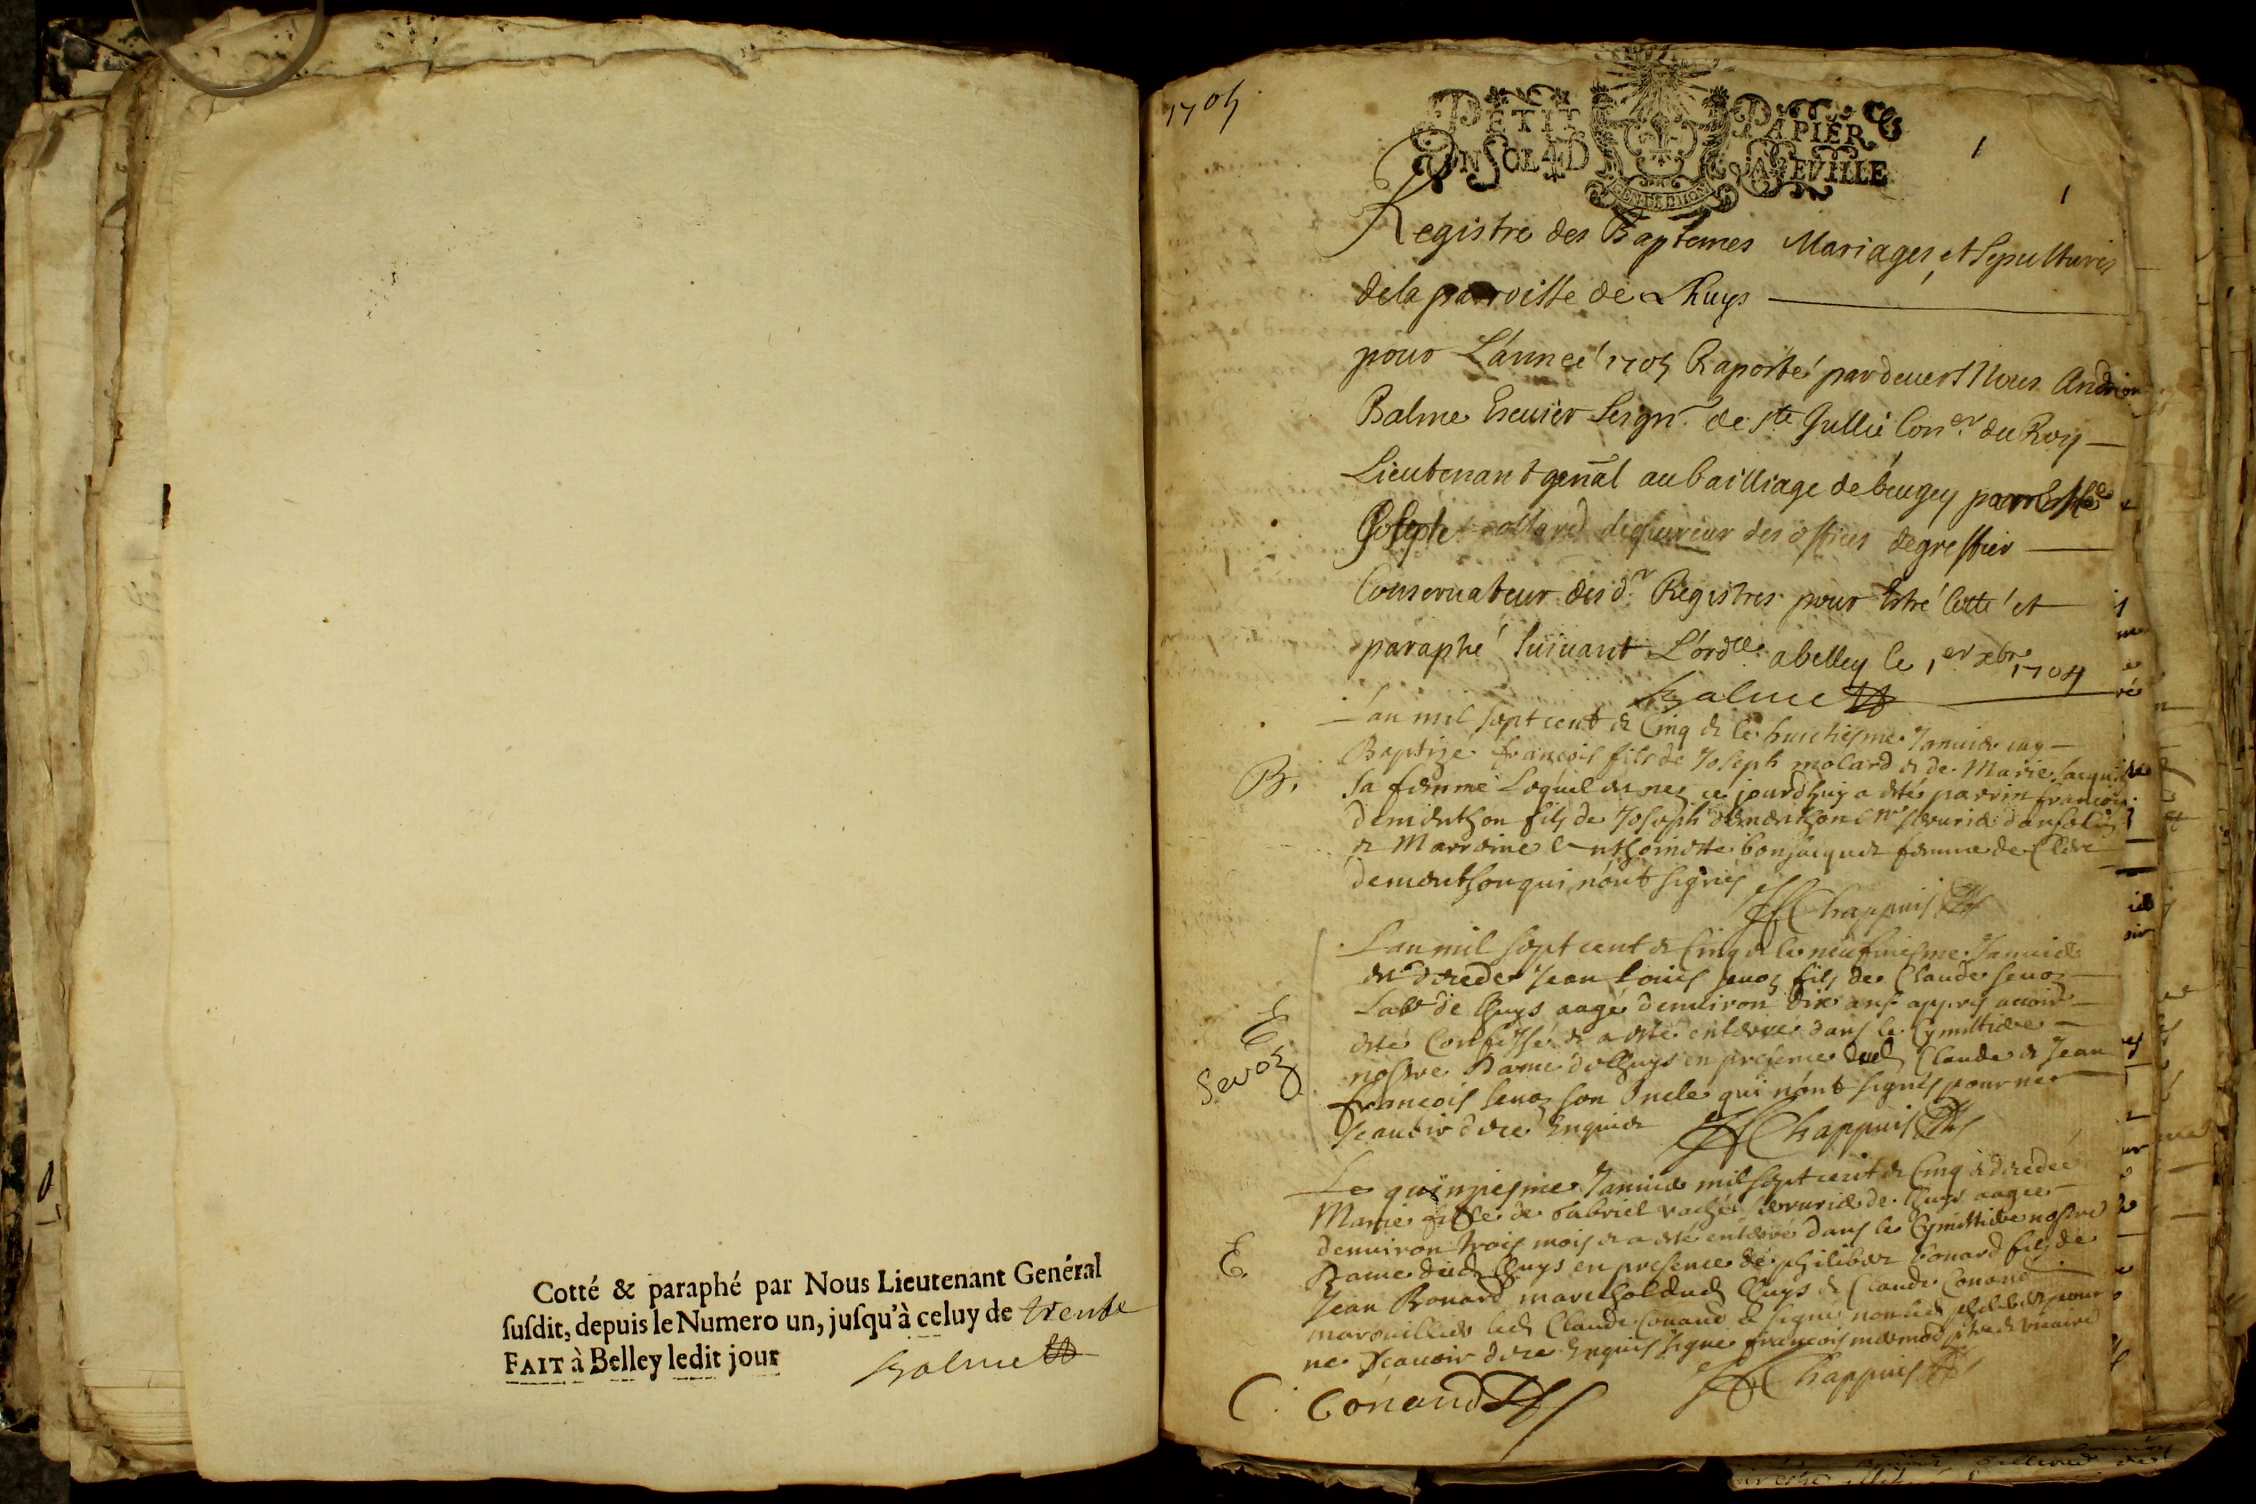 Cotté & paraphé par Nous Lieutenant Genéral
suſdit, depuis le Numero un, juſqu'à celuy de trente
FAIT à Belley ledit jour
Balme
1705
PETIT PAPIER
UN SOL 4 D LA FEVILLE
GEN. DE DIION
1
1
Registre des Baptemes Mariages et Sepultures
dela parroisse de Lhuys
pour L'année 1705 Raporté pardevert Nous
Balme Escuier Seignr. de ste Jullie Coner. du Roy
Lieutenant genãl au bailliage de beugey par
Joseph des offices de greffier
Conservateur des dr. Registres pour Estre Cotté et
paraphé suivant L'ordce. abelley le 1er xbre 1704
Balme
Lan mil sept cent & Cinq & le huictiesme Janvier jay
Baptizé françois fils de Joseph molard & de Marie
B. sa femme Lequel est nez ce jourdhuy a esté parrin françois
demonthon fils de Joseph demonthon
& Marreine anthoinette bonjacquet femme de
demonthon qui n'ont signés
Chappuis
Lan mil sept cent & Cinq & le neufviesme Janvier
est decedé Jean Louis sevoz fils de Claude sevoz
Labr de Lhuys aagé denviron dix ans appres avoir
E esté Confessé & a esté enterré dans le Cymittiere
Sevoz nostre Dame de Lhuys en presence dud Claude & Jean
françois sevoz son Oncle qui n'ont signés pour ne
scavoir decre Enquis Chappuis
Le quinziesme Janvier mil sept cent & Cinq est decedée
Marie fille de Gabriel vaché serrurier de Lhuys aagée
denviron trois mois & a esté enterré dans le Cymittiere nostre
E. Dame dud Lhuys en presence de philibert Bonard fils de
Jean Bonard mareschal dud Lhuys & Claude Conand
marouillier led Claude Conand a signé non led philibert pour
ne scavoir decre Enquis signe françois
Chappuis
C. Conand